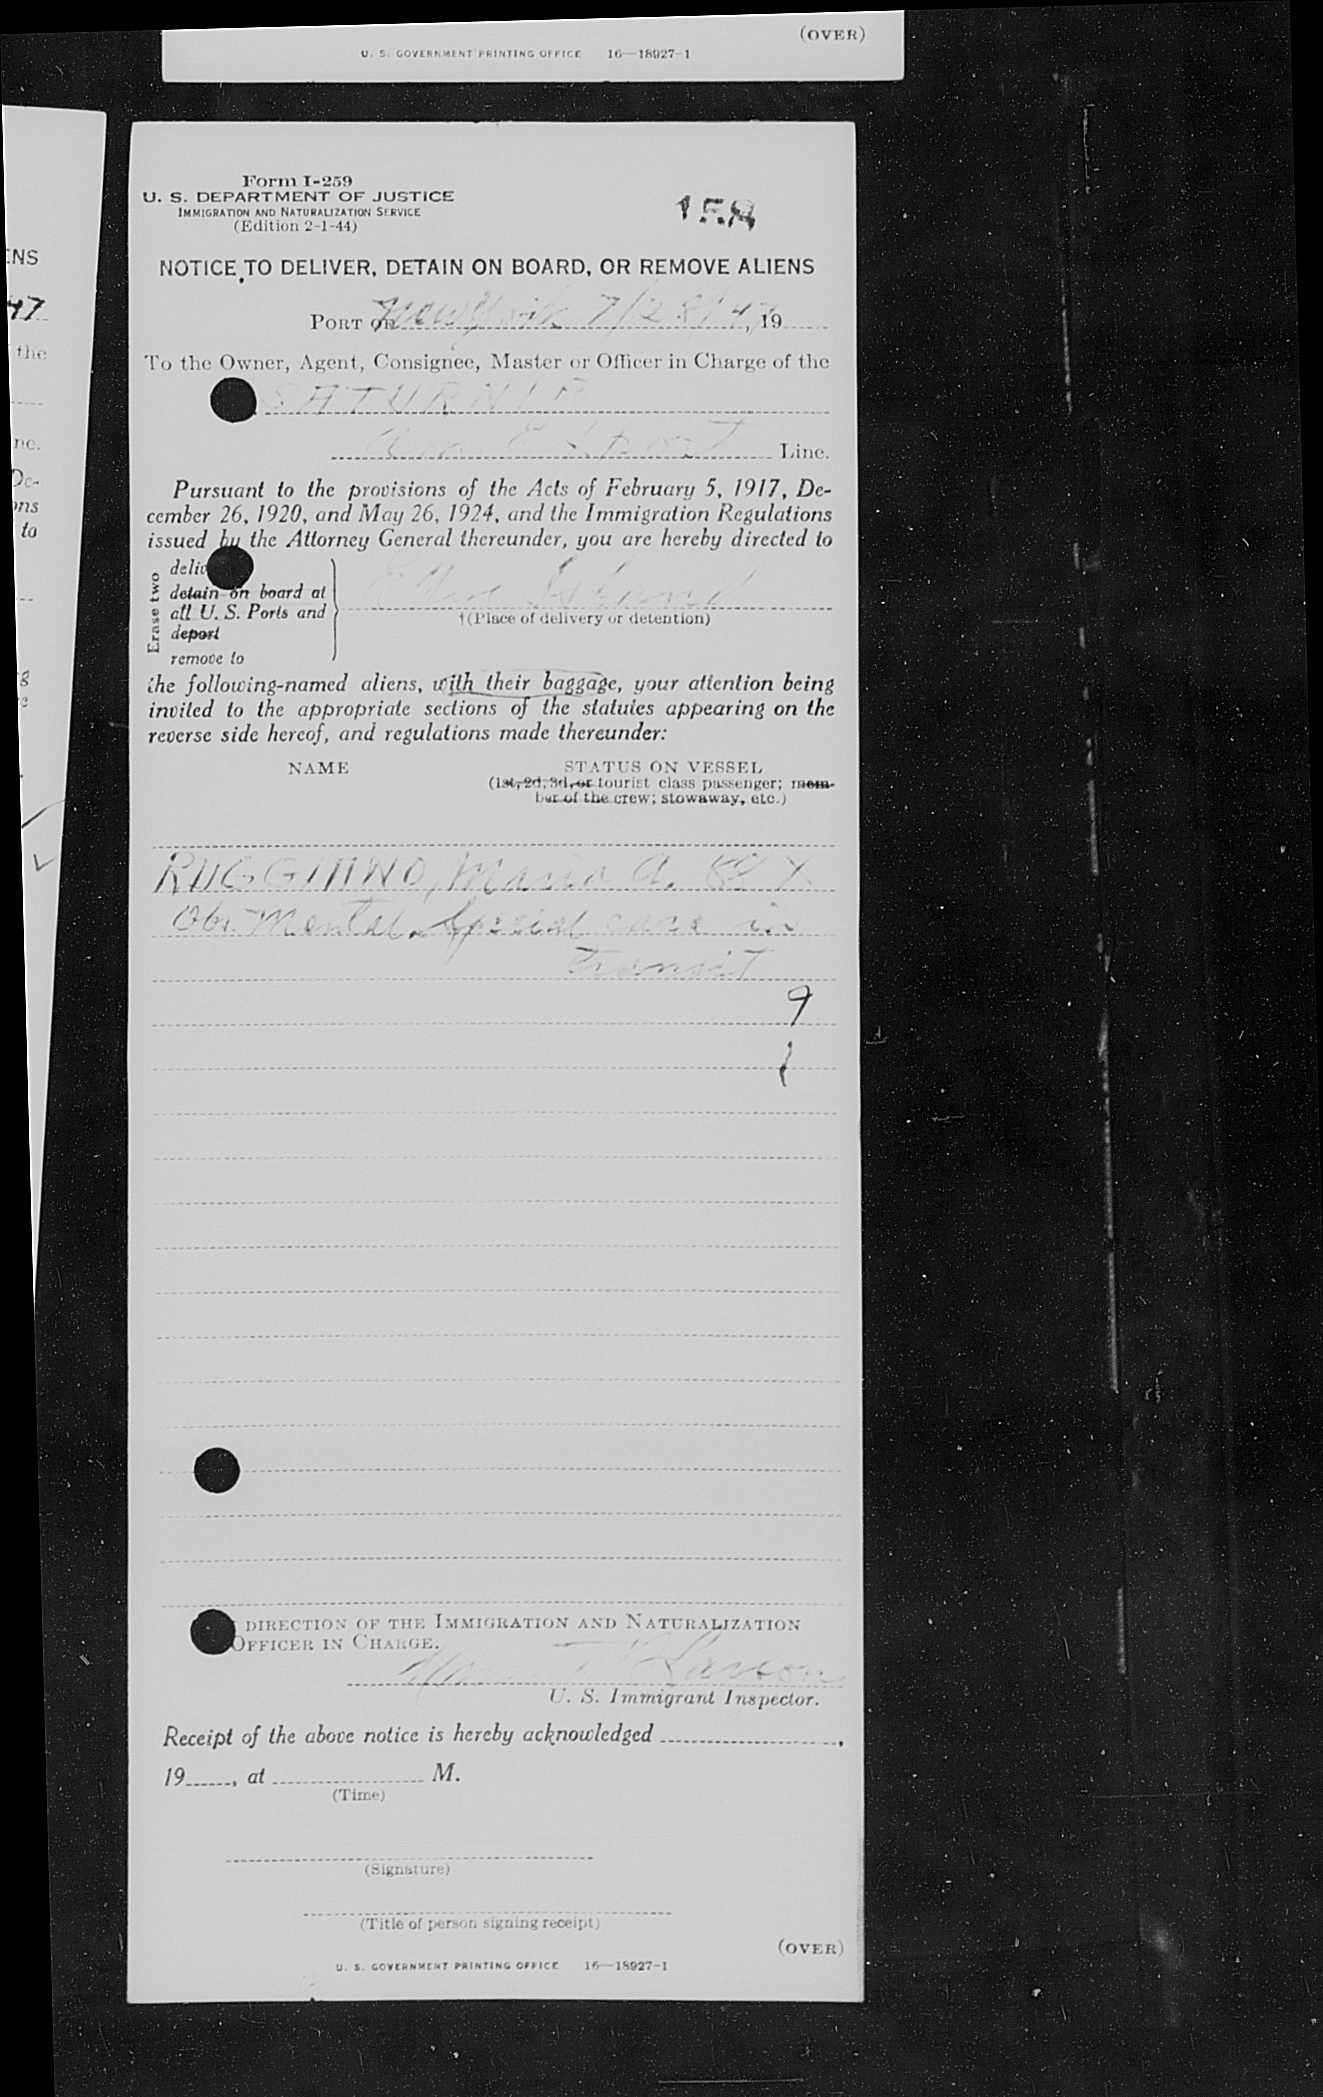 (OVER)
U. S. GOVERNMENT PRINTING OFFICE 16—18927-1
ENS
47
the
ne.
De-
ons
to
Form I-259
U. S. DEPARTMENT OF JUSTICE
IMMIGRATION AND NATURALIZATION SERVICE
(Edition 2-1-44)
158
NOTICE TO DELIVER, DETAIN ON BOARD, OR REMOVE ALIENS
PORT OF New York 7/28/47, 19
To the Owner, Agent, Consignee, Master or Officer in Charge of the
SATURNIA
Am Export Line.
Pursuant to the provisions of the Acts of February 5, 1917, De-
cember 26, 1920, and May 26, 1924, and the Immigration Regulations
issued by the Attorney General thereunder, you are hereby directed to
Erase two
deliv
detain on board at
all U. S. Ports and
deport
remove to
Ellis Island
†(Place of delivery or detention)
the following-named aliens, with their baggage, your attention being
invited to the appropriate sections of the statutes appearing on the
reverse side hereof, and regulations made thereunder:
NAME STATUS ON VESSEL
(1st, 2d, 3d, or tourist class passenger; mem-
ber of the crew; stowaway, etc.)
RUGGIANO, Maria A. X
Obs. Mental. Special care in
transit
9
1
DIRECTION OF THE IMMIGRATION AND NATURALIZATION
OFFICER IN CHARGE.
Larson
U. S. Immigrant Inspector.
Receipt of the above notice is hereby acknowledged ,
19 , at M.
(Time)
(Signature)
(Title of person signing receipt)
(OVER)
U. S. GOVERNMENT PRINTING OFFICE 16—18927-1